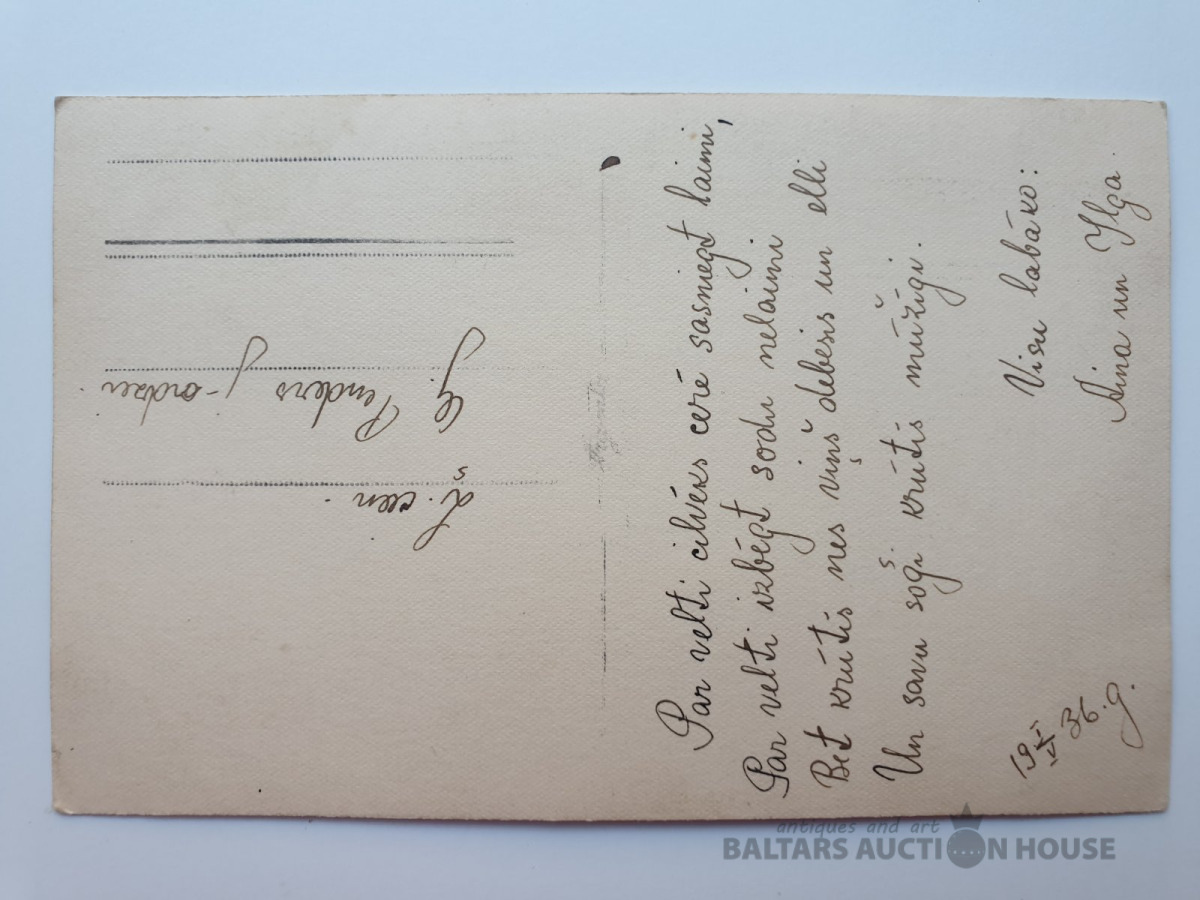 Par velti cilvēks cerē sasniegt laimi,
Par velti izbēgt sodu nelaimi
Bet krūtīs nes viņš debesis un elli
Un savu soģi krūtīs mūžīgi.
Visu labāko:
Aina un Ilga.
19 IV 36. g.
Ļ. cien.
G. Penders J-ordzei
antiques and art
BALTARS AUCTION HOUSE